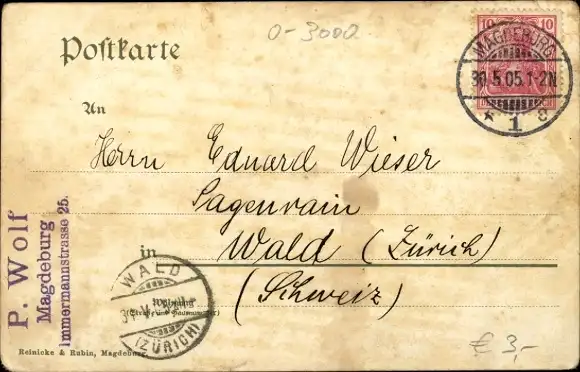 0-3000
10 10
Postkarte
MAGDEBURG
30.5.05.1-2N
* 1 g
An
Herrn Eduard Wieser
Sagenrain
in Wald (Zürich)
(Schweiz)
P. Wolf
Magdeburg
Immermannstrasse 25.
WALD
(ZÜRICH)
Wohnung
(Straße und Hausnummer)
Reinicke & Rubin, Magdeburg.
€ 3,-